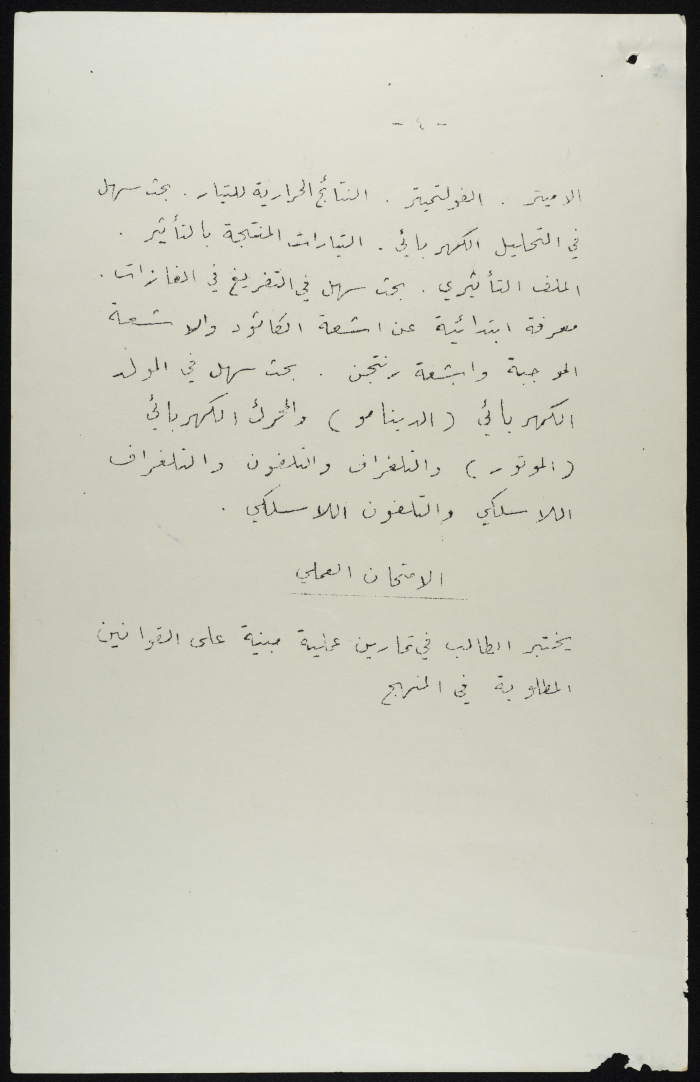 - ٤ -
الاميتر . الفولتميتر . النتائج الحرارية للتيار . بحث سهل
في التحاليل الكهربائي . التيارات المنتجة بالتأثير .
الملف التأثيري . بحث سهل في التفريغ في الغازات .
معرفة ابتدائية عن اشعة الكاثود والاشعة
الموجبة واشعة رنتجن . بحث سهل في المولد
الكهربائي (الدينامو) والمحرك الكهربائي
(الموتور) والتلغراف والتلفون والتلغراف
اللاسلكي والتلفون اللاسلكي .
الامتحان العملي
يختبر الطالب في تمارين عملية مبنية على القوانين
المطلوبة في المنهج